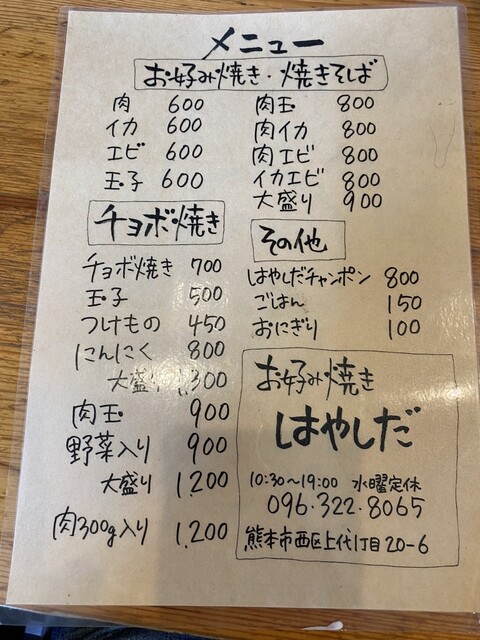 メニュー
お好み焼き・焼きそば
肉 600
イカ 600
エビ 600
玉子 600
肉玉 800
肉イカ 800
肉エビ 800
イカエビ 800
大盛り 900
チョボ焼き
チョボ焼き 700
玉子 500
つけもの 450
にんにく 800
大盛り 1,300
肉玉 900
野菜入り 900
大盛り 1,200
肉300g入り 1,200
その他
はやしだチャンポン 800
ごはん 150
おにぎり 100
お好み焼き
はやしだ
10:30～19:00 水曜定休
096・322・8065
熊本市西区上代1丁目20-6